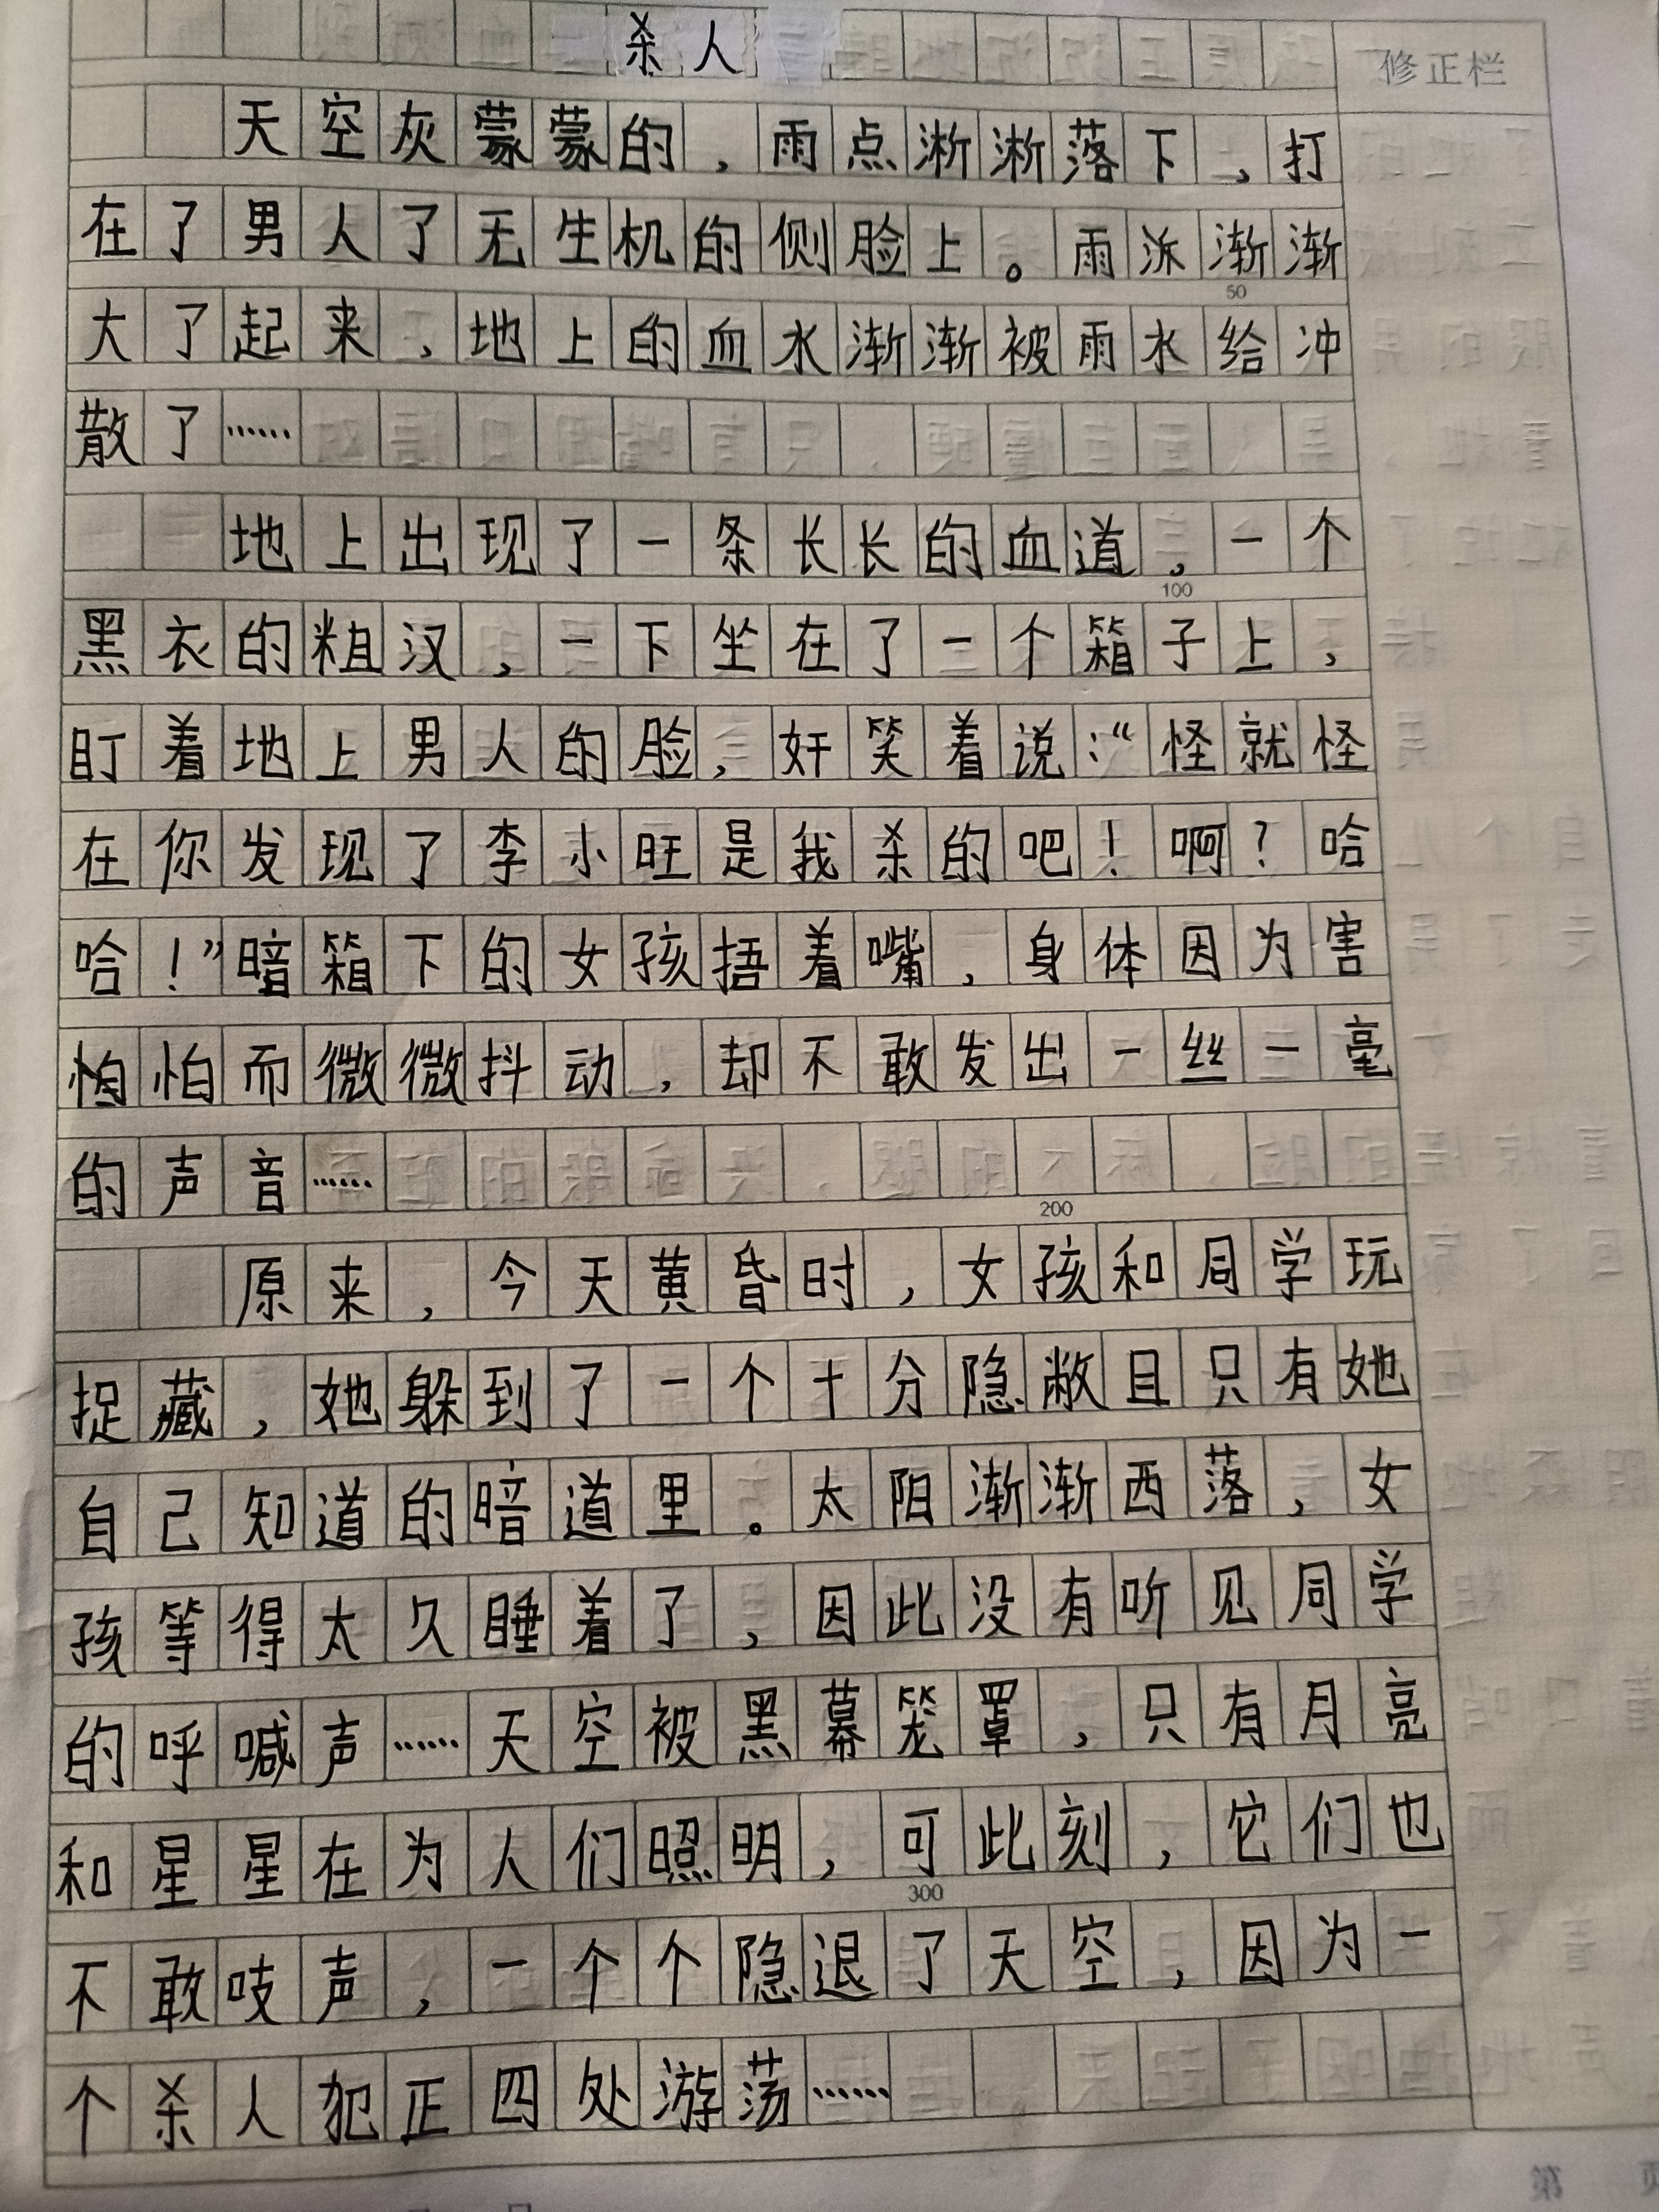 杀人
修正栏
天空灰蒙蒙的，雨点淅淅落下，打
在了男人了无生机的侧脸上。雨派渐渐
50
大了起来，地上的血水渐渐被雨水给冲
散了……
地上出现了一条长长的血道，一个
100
黑衣的粗汉，一下坐在了一个箱子上，
盯着地上男人的脸，奸笑着说：“怪就怪
在你发现了李小旺是我杀的吧！啊？哈
哈！”暗箱下的女孩捂着嘴，身体因为害
怕怕而微微抖动，却不敢发出一丝一毫
的声音……
200
原来，今天黄昏时，女孩和同学玩
捉藏，她躲到了一个十分隐敝且只有她
自己知道的暗道里。太阳渐渐西落，女
孩等得太久睡着了，因此没有听见同学
的呼喊声……天空被黑幕笼罩，只有月亮
和星星在为人们照明，可此刻，它们也
300
不敢吱声，一个个隐退了天空，因为一
个杀人犯正四处游荡……